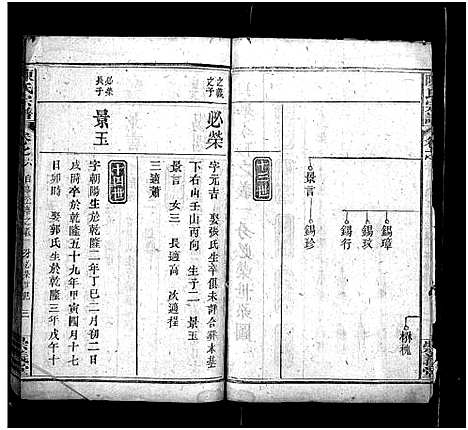 景言
錫璋
錫玟
錫行
錫珍
十三世
之義
之子
必榮
字元吉 娶張氏生卒俱未詳合葬木基
下右山壬山丙向 生子二 景玉
景言 女三 長適高 次適程
三適蕭
十四世
必榮
長子
景玉
字朝陽生於乾隆二年丁巳二月初二日
戌時卒於乾隆五十九年甲寅四月十七
日卯時 娶郭氏生於乾隆三年戊午十
陳氏宗譜